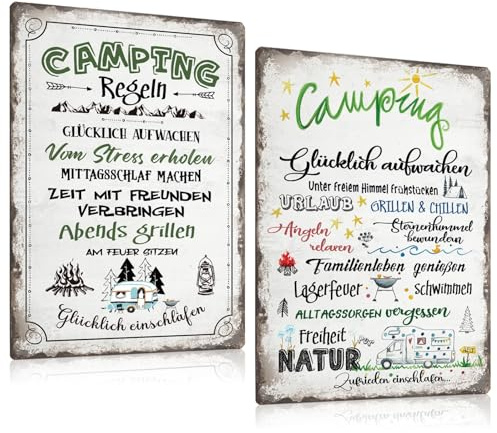 CAMPING
Regeln
GLÜCKLICH AUFWACHEN
Vom Stress erholen
MITTAGSSCHLAF MACHEN
ZEIT MIT FREUNDEN
VERBRINGEN
Abends grillen
AM FEUER SITZEN
Glücklich einschlafen
Camping
Glücklich aufwachen
Unter freiem Himmel frühstücken
URLAUB GRILLEN & CHILLEN
Angeln Sternenhimmel
relaxen bewundern
Familienleben genießen
Lagerfeuer schwimmen
ALLTAGSSORGEN vergessen
Freiheit
NATUR
Zufrieden einschlafen...